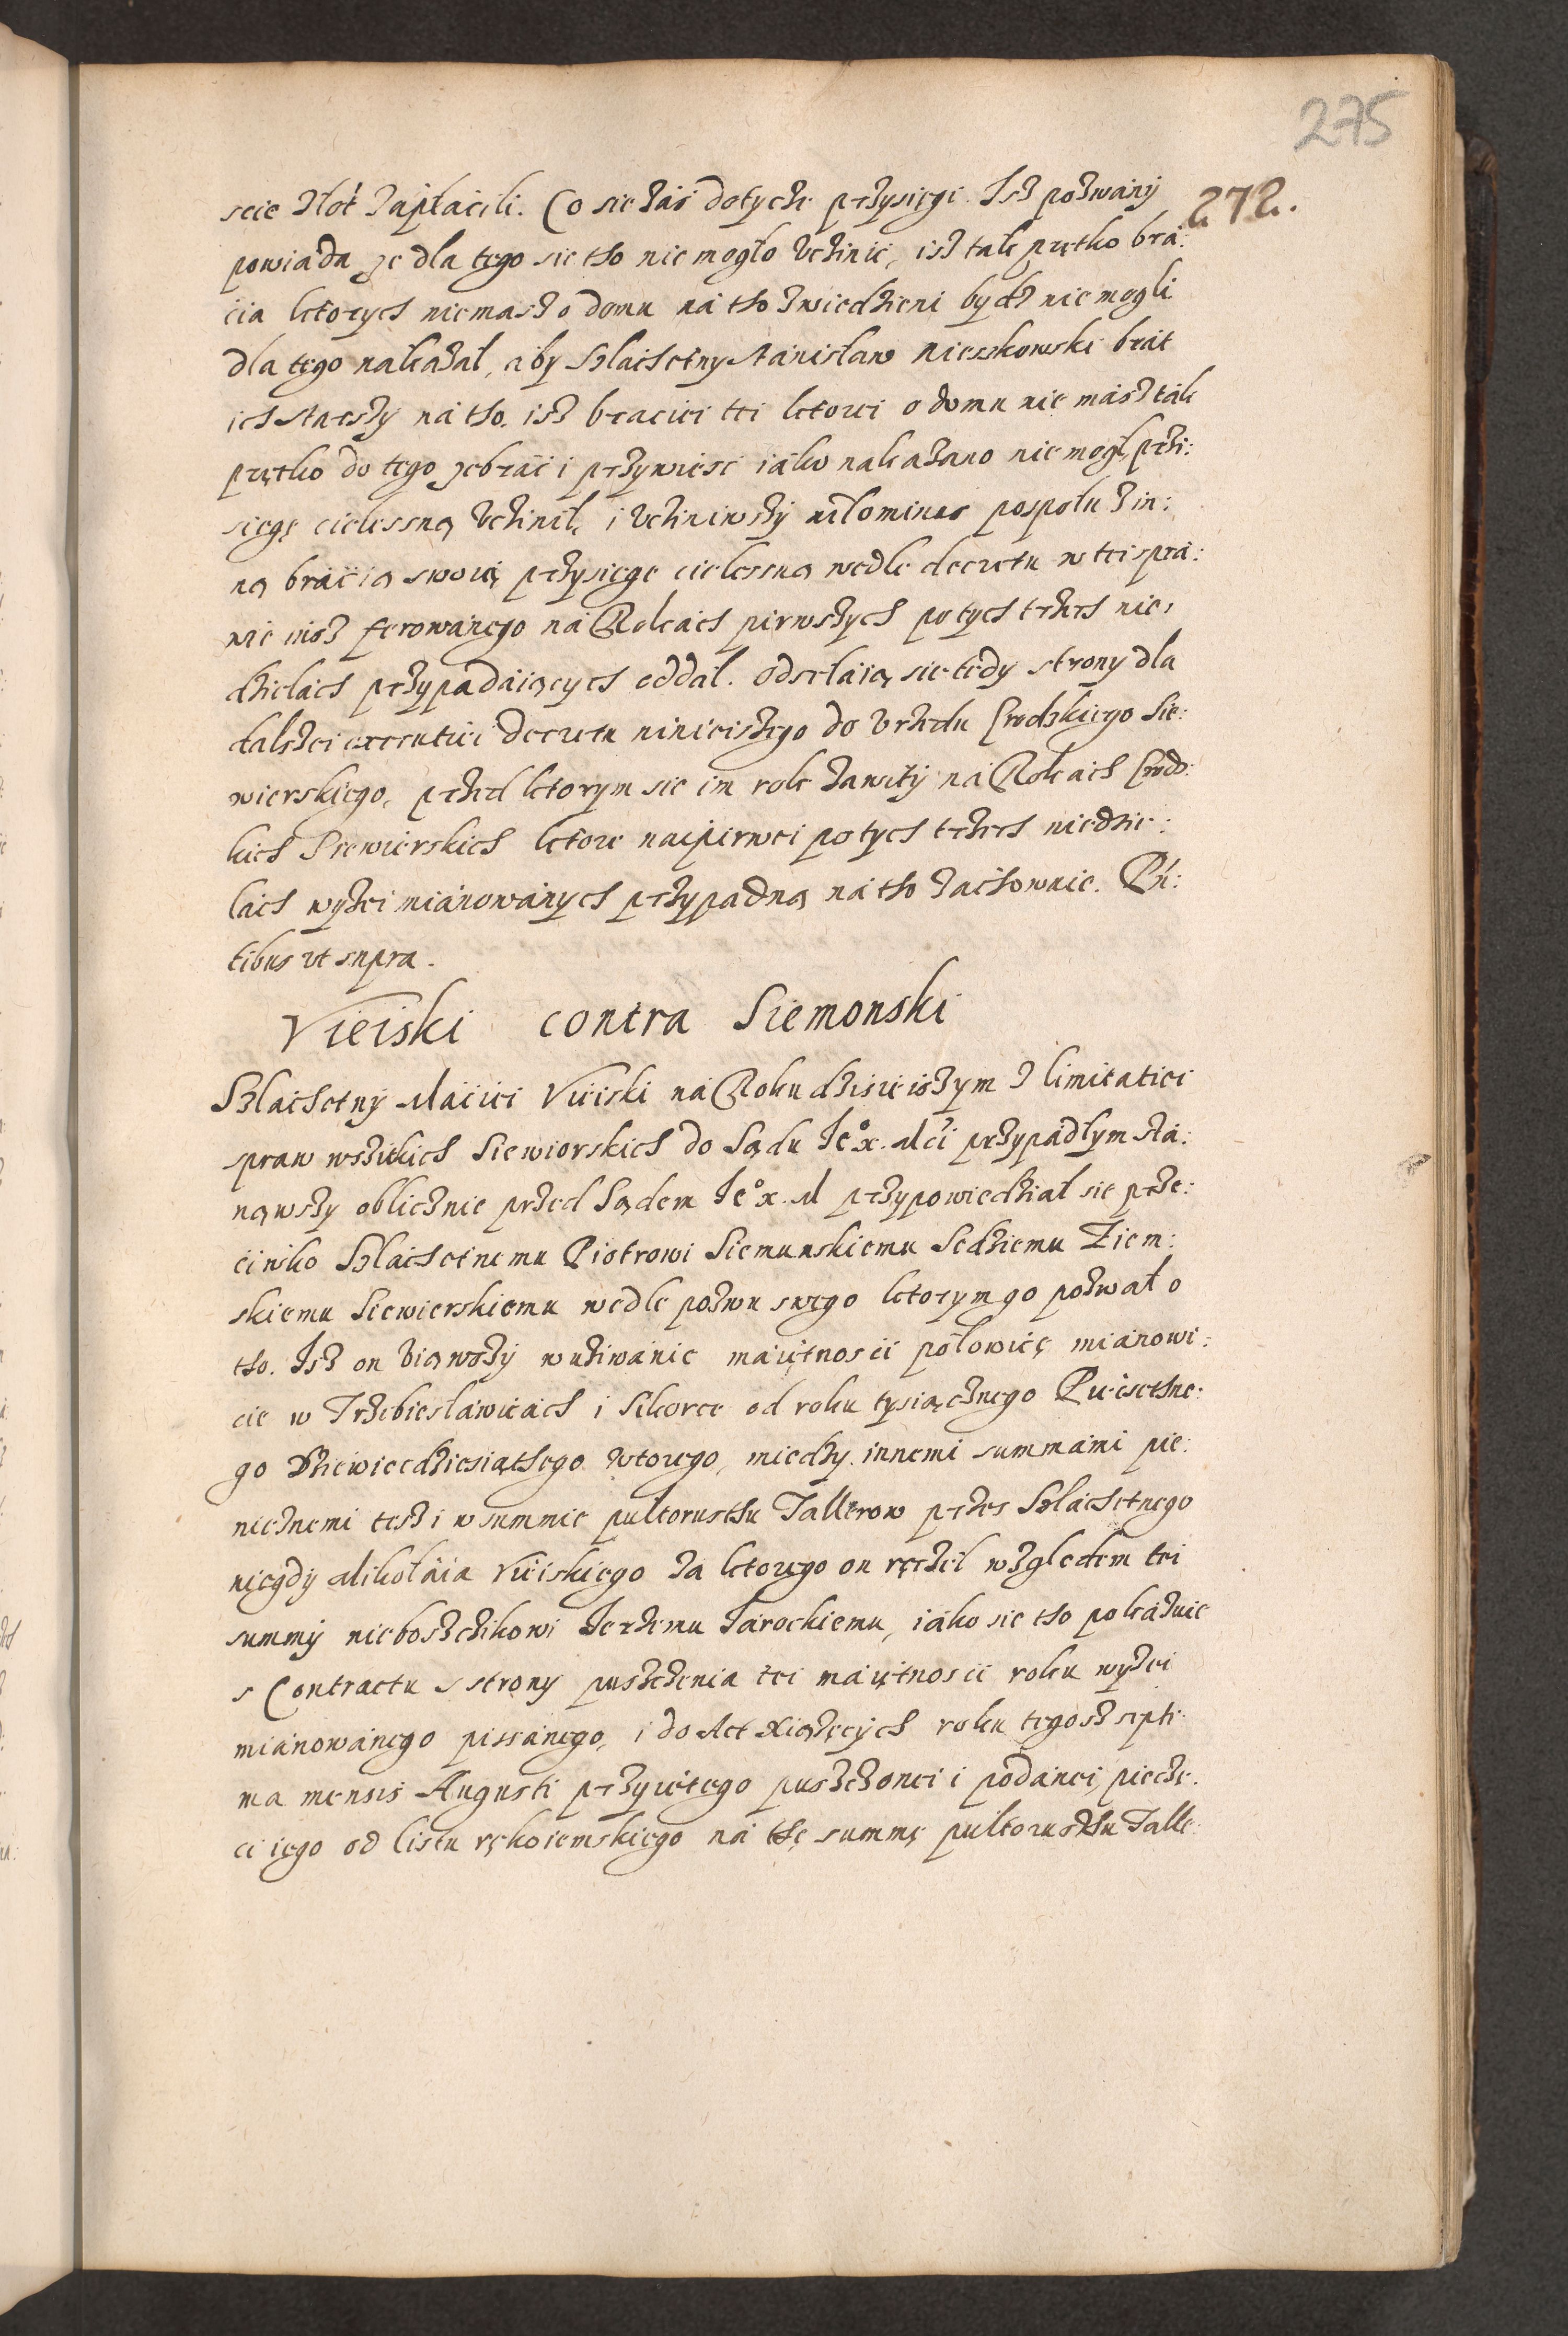 275
272.
scie złot zapłacili. Co sie záś dotycze przysięgi. Isz pozwány
powiada że dla tego sie tho nie mogło vczinić, isz tak prętko brá:
cia ktorych niemasz o domu ná tho zwiedzieni bydź nie mogli
dla tego nakazał, aby Szlachetny Stanisław Nieszkowski brát
ich starszy ná tho. isz braciei tei ktorei o domu nie mász ták
prętko do tego zebráć i przywiesć iáko nakazano nie mogł, przi:
sięgę cielessną vczinił, i vcziniwszy niłominus pospołu z in:
ną bráciią swoią przysięge cielessną wedle decretu w tei sprá:
wie iusz ferowánego ná Rokách pirwszych po tych trzech nie,
dzielách przypadáiących oddál. Odsełáią sie tedy strony dla
dalszei executiei decretu ninieiszego do Vrzedu Grodzkiego Sie:
wierskiego, przed ktorym sie im rok záwity ná Rokach Grodz:
kich Siewierskich ktore naipierwei po tych trzech niedzie:
lach wyżei miánowánych przypadną ná tho záchowuie. Pń:
tibus vt supra.
Vieiski contra Siemonski
Szláchetny Maciei Vieiski ná Roku dzisieiszym z limitatiei
spraw wszitkich Siewiorskich do Sądu Ieº x. Mći przypádłym stá:
nąwszy oblicznie przed Sądem Ieº x. M przypowiedział sie prze:
ciwko Szláchetnemu Piotrowi Siemunskiemu Sedziemu Ziem:
skiemu Siewierskiemu wedle pozwu swego ktorym go pozwał o
tho. Isz on wiąwszy w uziwánie maiętnoscii połowicę mianowi:
cie w Trzebiesławicách i Sikorce od roku tysiącznego Piecsethne:
go Dziewiecdziesiąthego wtorego, miedzy innemi summámi pie:
nieznemi tesz i w summie pułtorusthu Tallerow przes Szláchetnego
niegdy Mikołáia Vieiskiego zá ktorego on ręczeł względem tei
summy nieboszczikowi Ierzemu Iárockiemu, iáko sie tho pokázuie
s Contractu s strony puszczenia tei maiętnoscii roku wyżei
miánowánego pissánego, i do Act Xiążęcych roku tegosz septi:
ma mensis Augusti przyiętego puszczonei i podánei, pieczę:
ci iego od listu rękoiemskiego ná thę summę pułtorusthu Talle: